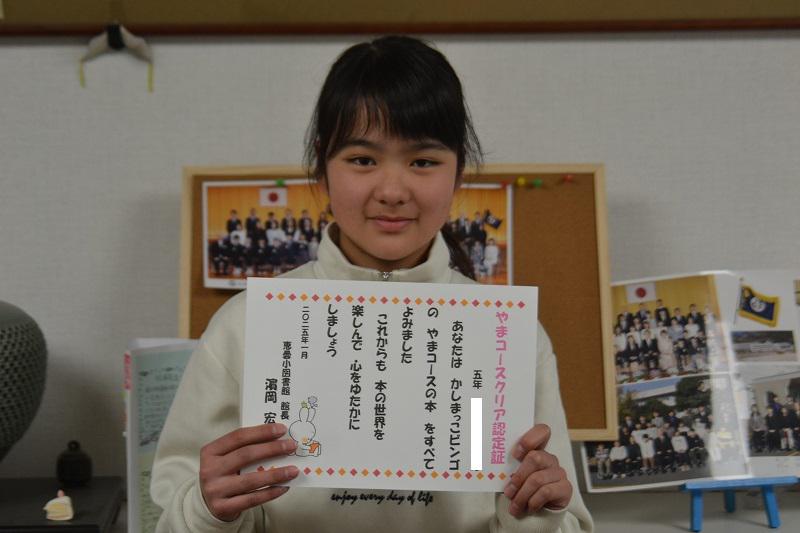 やまコースクリア認定証
五年
あなたは かしまっこビンゴ
の やまコースの本 をすべて
よみました
これからも 本の世界を
楽しんで 心をゆたかに
しましょう
二〇二五年一月
恵曇小図書館 館長
濵岡 宏
enjoy every day of life